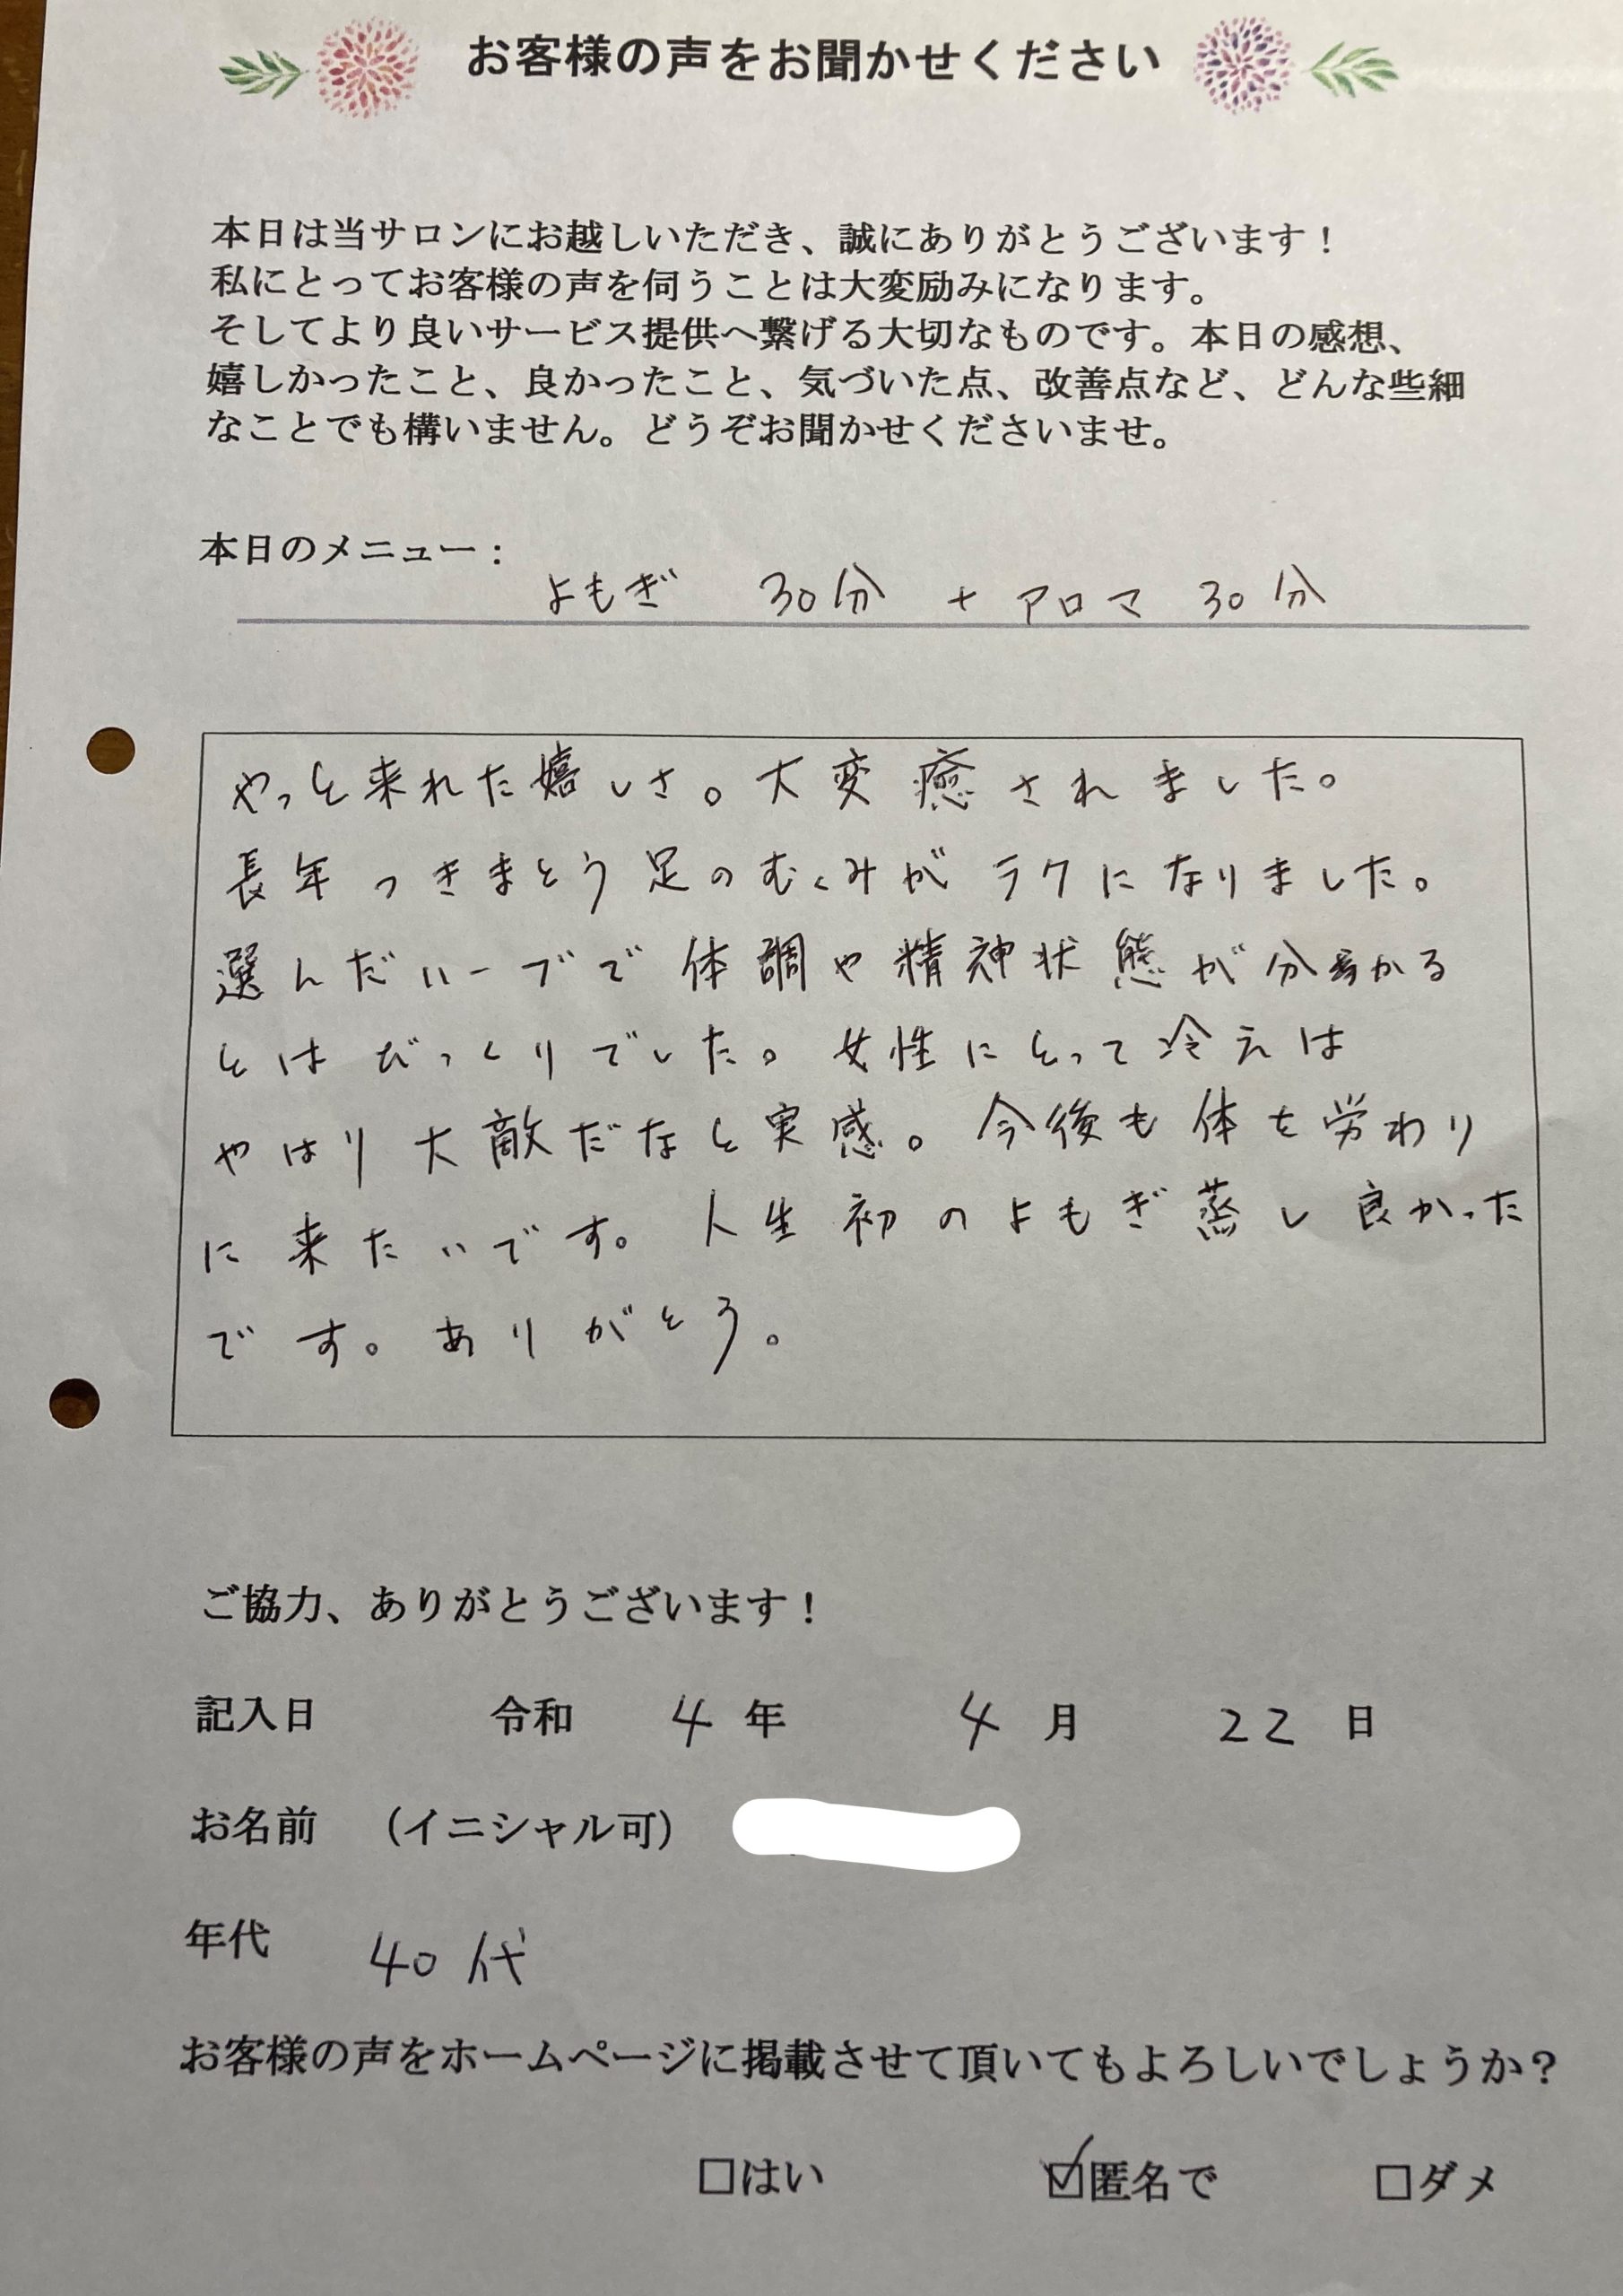 お客様の声をお聞かせください
本日は当サロンにお越しいただき、誠にありがとうございます!
私にとってお客様の声を伺うことは大変励みになります。
そしてより良いサービス提供へ繋げる大切なものです。本日の感想、
嬉しかったこと、良かったこと、気づいた点、改善点など、どんな些細
なことでも構いません。どうぞお聞かせくださいませ。
本日のメニュー:
よもぎ 30分 + アロマ 30分
やっと来れた嬉しさ。大変癒されました。
長年つきまとう足のむくみがラクになりました。
選んだハーブで体調や精神状態が分かる
とはびっくりでした。女性にとって冷えは
やはり大敵だなと実感。今後も体を労わり
に来たいです。人生初のよもぎ蒸し良かった
です。ありがとう。
ご協力、ありがとうございます!
記入日 令和 4 年 4 月 22 日
お名前 (イニシャル可)
年代 40代
お客様の声をホームページに掲載させて頂いてもよろしいでしょうか?
□はい ☑匿名で □ダメ